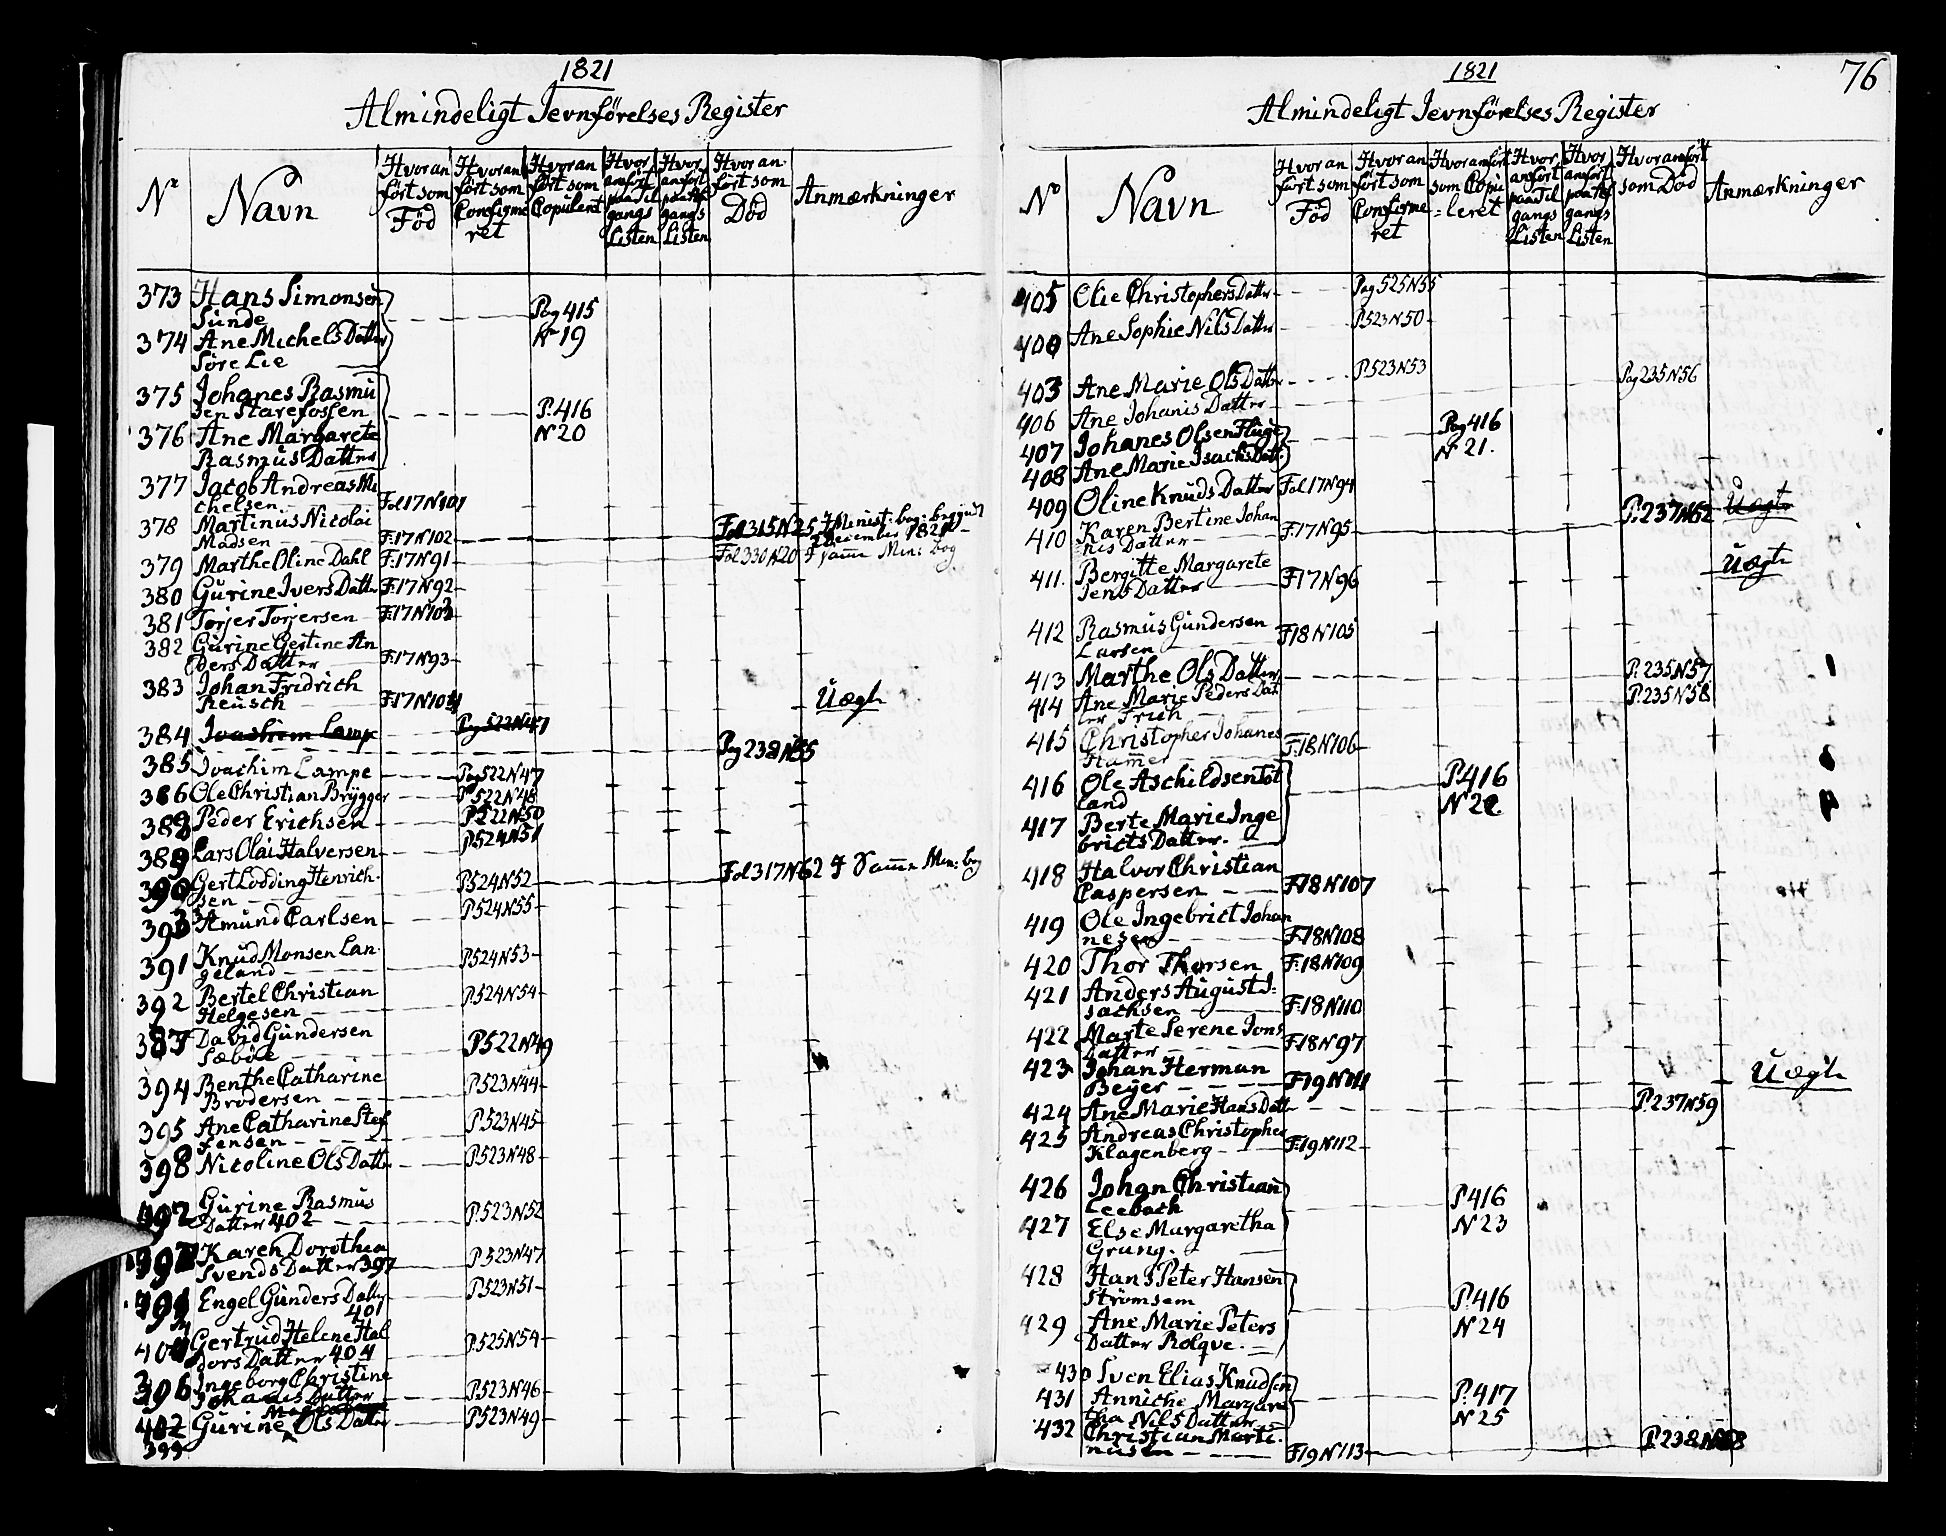 1821
Almindeligt Jevnförelses Register
Nr
Navn
Hvor an
fört som
Föd
Hvor an
fört som
Confirme
ret
Hvor an
fört som
Copuleret
Hvor
anfört
paa Til
gangs
Listen
Hvor
anfört
paa Af
gangs
Listen
Hvor an
fört som
Död
Anmærkninger
373 Hans Simonsen
Sunde Pag 415
374 Ane Michels Datter Nr 19
Söre Lie
375 Johanes Rasmu
sen Starefossen P. 416
376 Ane Margarete N 20
Rasmus Datter
377 Jacob Andreas Mi
chelsen Fol 17 N 101
378 Martinus Nicolai Fol 315 N 25 I Minist: bog: begynd
Madsen F. 17 N 102 December 1820
379 Marthe Oline Dahl F. 17 N 91 Fol 330 N 20 I samme Min: bog
380 Gurine Ivers Datter F. 17 N 92
381 Torjer Torjersen F. 17 N 103
382 Gurine Gertine An
ders Datter F. 17 N 93
383 Johan Fridrich
Reusch F. 17 N 104 Uægte
384 Joachim Lampe Pag 522 N 47
385 Joachim Lampe Pag 522 N 47 Pag 238 N 55
386 Ole Christian Brygger P 522 N 48
388 Peder Erichsen P. 522 N 50
389 Lars Olai Halversen P. 524 N 51
390 Gert Lodding Henrich
sen P. 524 N 52 Fol 317 N 62 I Samme Min: bog
393 Amund Carlsen P. 524 N 55
391 Knud Monsen Lan
geland P. 524 N 53
392 Bertel Christian
Helgesen P. 524 N 54
387 David Gundersen
Sæböe P. 522 N 49
394 Benthe Catharine
Brodersen P. 523 N 44
395 Ane Catharine Stef
fensen P. 523 N 45
398 Nicoline Ols Datter P. 523 N 48
Gurine Rasmus
Datter 402 P. 523 N 52
Karen Dorothea
Svends Datter 397 P. 523 N 47
Engel Gunders Datter P. 523 N 51
401
Gertrud Helene Hal
dors Datter 404 P. 525 N 54
396 Ingeborg Christine
Datter P. 523 N 46
402 Gurine Ols Datter P. 523 N 49
399
1821
76
Almindeligt Jevnförelses Register
No
Navn
Hvor an
fört som
Föd
Hvor an
fört som
Confirme
ret
Hvor anfört
som Copu
=leret
Hvor
anfört
paa Til
gangs
Listen
Hvor
anfört
paa Af
gangs
Listen
Hvor anfört
som Död
Anmærkninger
405 Olie Christophers Datter Pag 525 N 55
400 Ane Sophie Nils Datter P. 523 N 50
403 Ane Marie Ols Datter P. 523 N 53
406 Ane Johanis Datter Pag 235 N 56
407 Johanes Olsen Fluge Pag 416
408 Ane Marie Isachs Datt: N 21.
409 Oline Knuds Datter Fol. 17 N 94
410 Karen Bertine Johan
nis Datter F. 17 N 95 P. 237 N 62 Uægte
411. Bergitte Margarete
Jens Datter F. 17 N 96 Uægte
412 Rasmus Gundersen
Larsen F. 18 N 105
413 Marthe Ols Datter P. 235 N 57
414 Ane Marie Peders Dat
ter Frich P. 235 N 58
415 Christopher Johanes
Hammer F. 18 N 106
416 Ole Aschildsen Tot
land P. 416
417 Berte Marie Inge N 22
bricts Datter.
418 Halvor Christian
Caspersen F. 18 N 107
419 Ole Ingebrict Johan
nesen F. 18 N 108
420 Thor Thorsen F. 18 N 109
421 Anders August I=
sachsen F. 18 N 110
422 Marte Serene Jons
Datter F. 18 N 97
423 Johan Herman
Beyer F. 19 N 111 Uægte
424 Ane Marie Hans Datt P. 237 N 59
425 Andreas Christopher
Klagenberg F. 19 N 112
426 Johan Christian
Leebach P. 416
427 Else Margaretha N 23
Grung.
428 Hans Peter Hansen
Strömsem P. 416
429 Ane Marie Peters N 24
Datter Rolqve.
430 Sven Elias Knudsen
431 Anniche Margare P. 417
tha Nils Datter N 25
432 Christian Marti
nusen F. 19 N 113 P. 238 N 68